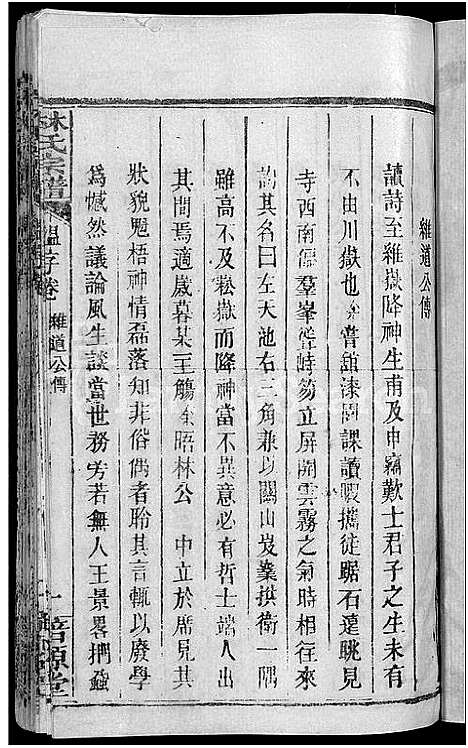 維道公傳
讀詩至維嶽降神生甫及申竊歎士君子之生未有
不由川嶽也余嘗舘漆園課讀暇攜徒踞石遠眺見
寺西南偏羣峯聳峙笏立屏開雲霧之氣時相往來
詢其名曰左天池右三角兼以關山岌嶪拱衛一隅
雖高不及崧嶽而降神當不異意必有哲士端人出
其間焉適歲暮某主觴余晤林公 中立於席見其
狀貌魁梧神情磊落知非俗偶者聆其言輒以廢學
為憾然議論風生談當世務旁若無人王景畧捫蝨
林氏宗譜
卷 維道公傳
一